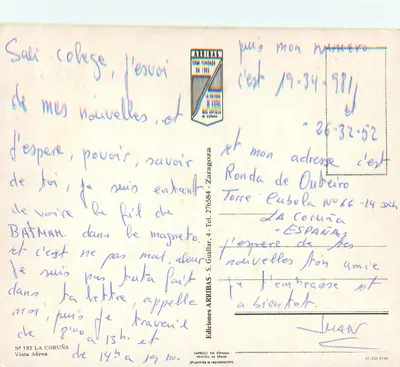 Sali colege, j'esvoi
de mes nouvelles, et
j'espere, pouvoir, savoir
de toi, je suis entant
de voire la fil de
BATMAN. dans le magneto.
et c'est ne pas mal, alor
je suis pas tuta fait
dans ta lettre, appelle
moi, puis je travaille
de 8h00 a 13h. et
de 14h a 19 h.
Nº 183 LA CORUÑA
Vista Aérea
ARRIBAS
CASA FUNDADA
EN 1905
Ediciones ARRIBAS - S. Guillar, 4 - Tel. 276584 - Zaragoza
IMPRESO EN ESPAÑA
PRINTED IN SPAIN
(Prohibida la reproducción)
puis mon numero
c'est 19-34-981
26-32-52
et mon adresse c'est
Ronda de Outeiro
Torre Cubela Nº66-14
LA CORUÑA
-ESPAÑA-
j'espere de tes
nouvelles ton amie
je t'embrasse et
a bientot.
JUAN